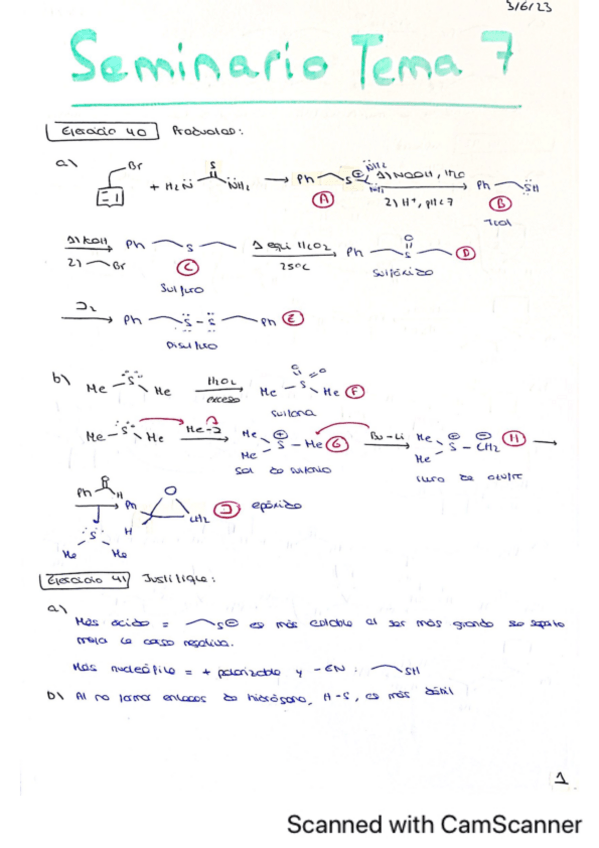 3/6/23
Seminario Tema 7
Ejercicio 40 Productos:
a)
Br
+ H₂N S NH₂ → Ph S⊕ NH₂ NH₂ 1) NaOH, H₂O 2) H⁺, pH<7 Ph SH
A B
Tiol
1) KOH 2) Br Ph S C 1 equi H₂O₂ 25ºC Ph S O D
Sulfuro Sulfóxido
I₂ → Ph S-S Ph E
Disulfuro
b) Me S Me H₂O₂ exceso Me S Me O O F
Sulfona
Me S Me Me-I Me Me S⊕-Me G Bu-Li Me Me S⊕ ⊖CH₂ H →
Sal de sulfonio iluro de azufre
Ph O H Ph O CH₂ H I epóxido
S
Me Me
Ejercicio 41 Justifique:
a)
Más ácido = S⊖ es más estable al ser más grande se
mejor la carga negativa.
Más nucleófilo = + polarizable y -EN: SH
b) Al no formar enlaces de hidrógeno, H-S, es más débil
1
Scanned with CamScanner